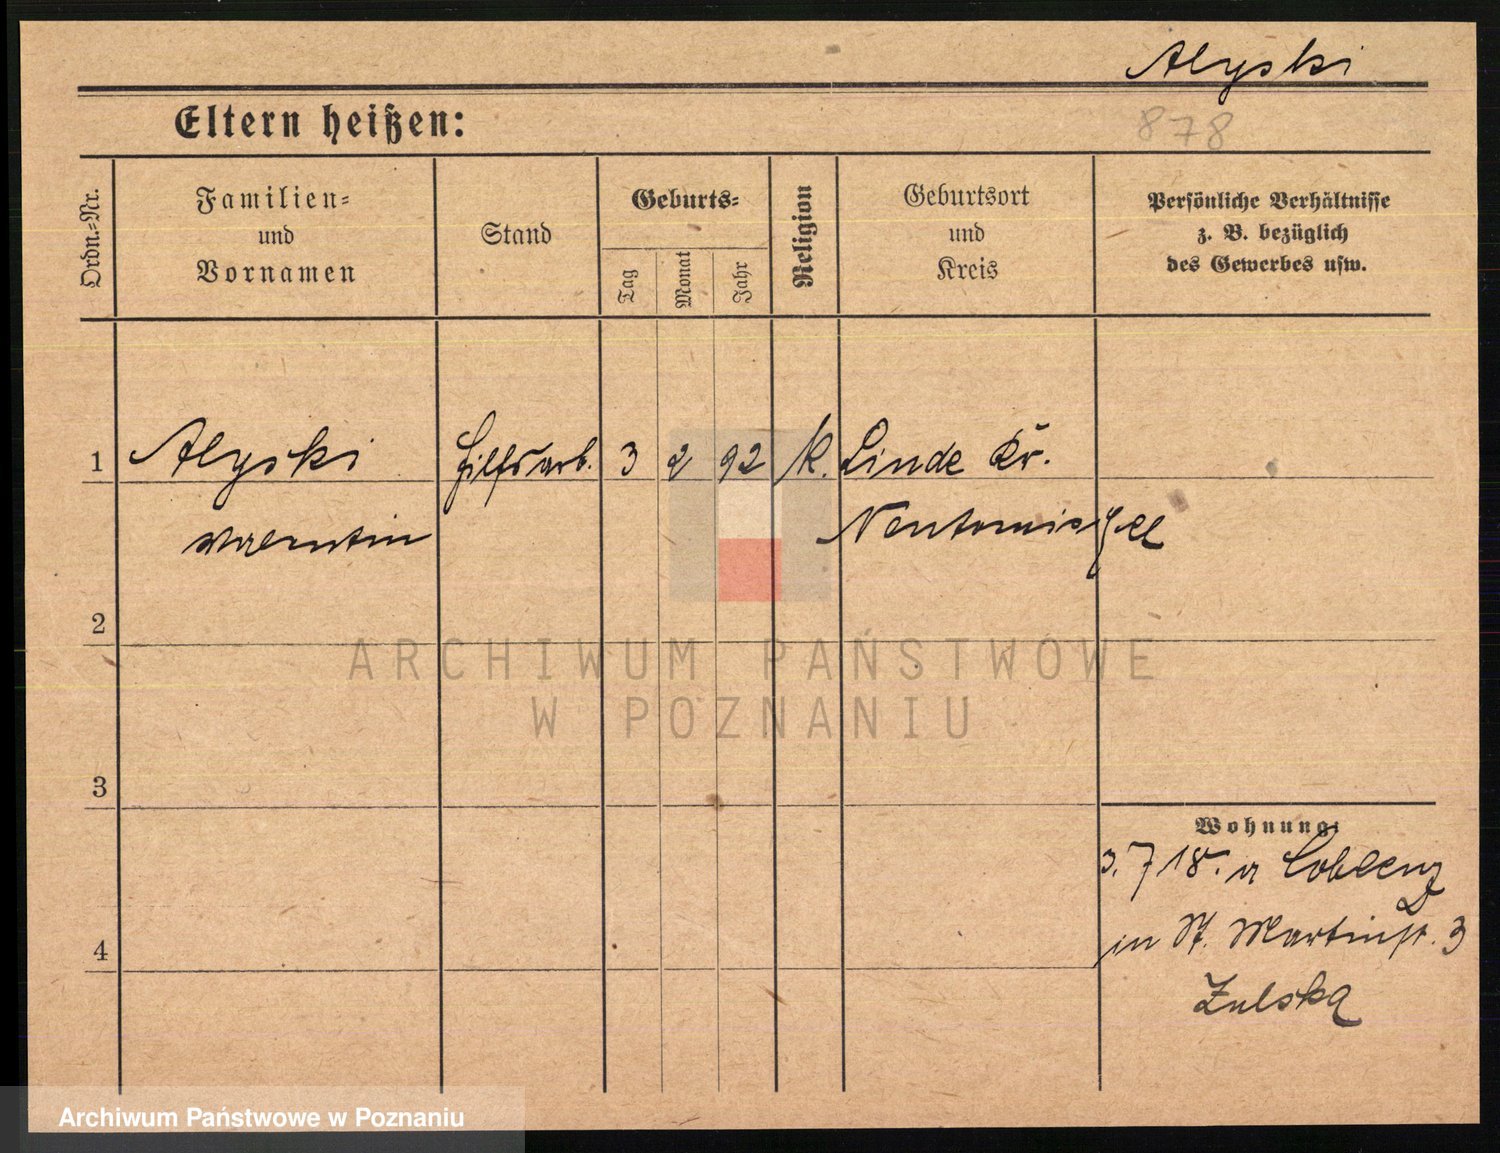 Alyski
878
Eltern heißen:
Ordn.-Nr.
Familien-
und
Vornamen
Stand
Geburts-
Tag
Monat
Jahr
Religion
Geburtsort
und
Kreis
Persönliche Verhältnisse
z. B. bezüglich
des Gewerbes usw.
1 Alyski Hilfsarb. 3 2 92 K. Linde Kr.
Valentin Neutomischel
2
ARCHIWUM PAŃSTWOWE
W POZNANIU
3
Wohnung:
3. 7 18. v Coblenz
in St. Martinstr. 3
4
Zulska
Archiwum Państwowe w Poznaniu